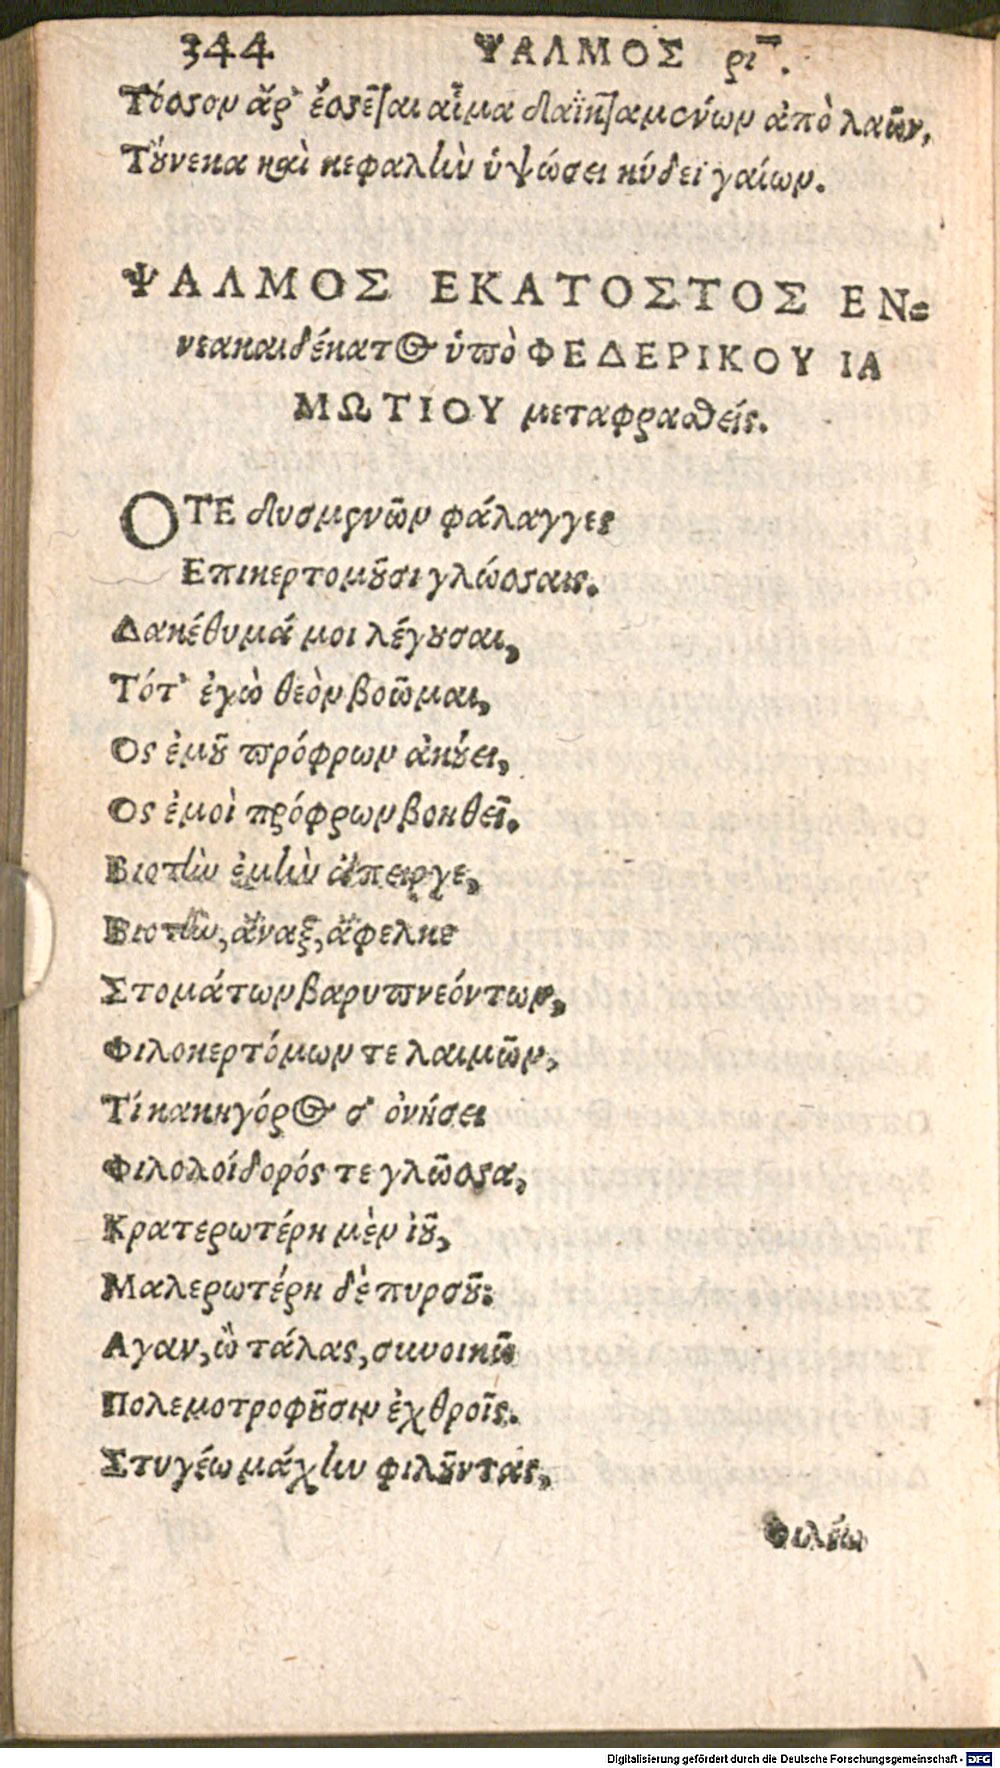 344 ΨΑΛΜΟΣ ριʹ.
Τόσσον ἄρ' ἐσσεῖται αἷμα δαϊκταμένων ἀπὸ λαῶν,
Τοὔνεκα καὶ κεφαλὴν ὑψώσει κύδεϊ γαίων.
ΨΑΛΜΟΣ ΕΚΑΤΟΣΤΟΣ ΕΝ-
νεακαιδέκατος ὑπὸ ΦΕΔΕΡΙΚΟΥ ΙΑ
ΜΩΤΙΟΥ μεταφρασθείς.
ΟΤΕ δυσμενῶν φάλαγγες
Επικερτομοῦσι γλώσσαις.
Δακέθυμά μοι λέγουσαι,
Τότ' ἐγὼ θεὸν βοῶμαι,
Ος ἐμοῦ πρόφρων ἀκούει,
Ος ἐμοὶ πρόφρων βοηθεῖ.
Βιοτὴν ἐμὴν ἄπεργε,
Βιοτὴν, ἄναξ, ἄφελκε
Στομάτων βαρυπνεόντων,
Φιλοκερτόμων τε λαιμῶν,
Τί κακηγόρος σ' ὀνήσει
Φιλολοίδορός τε γλῶσσα,
Κρατερωτέρη μὲν ἰοῦ,
Μαλερωτέρη δὲ πυρσοῦ:
Αγαν, ὢ τάλας, συνοικῶ
Πολεμοτροφοῦσιν ἐχθροῖς.
Στυγέω μάχην φιλοῦντας,
Φιλέω
Digitalisierung gefördert durch die Deutsche Forschungsgemeinschaft - DFG